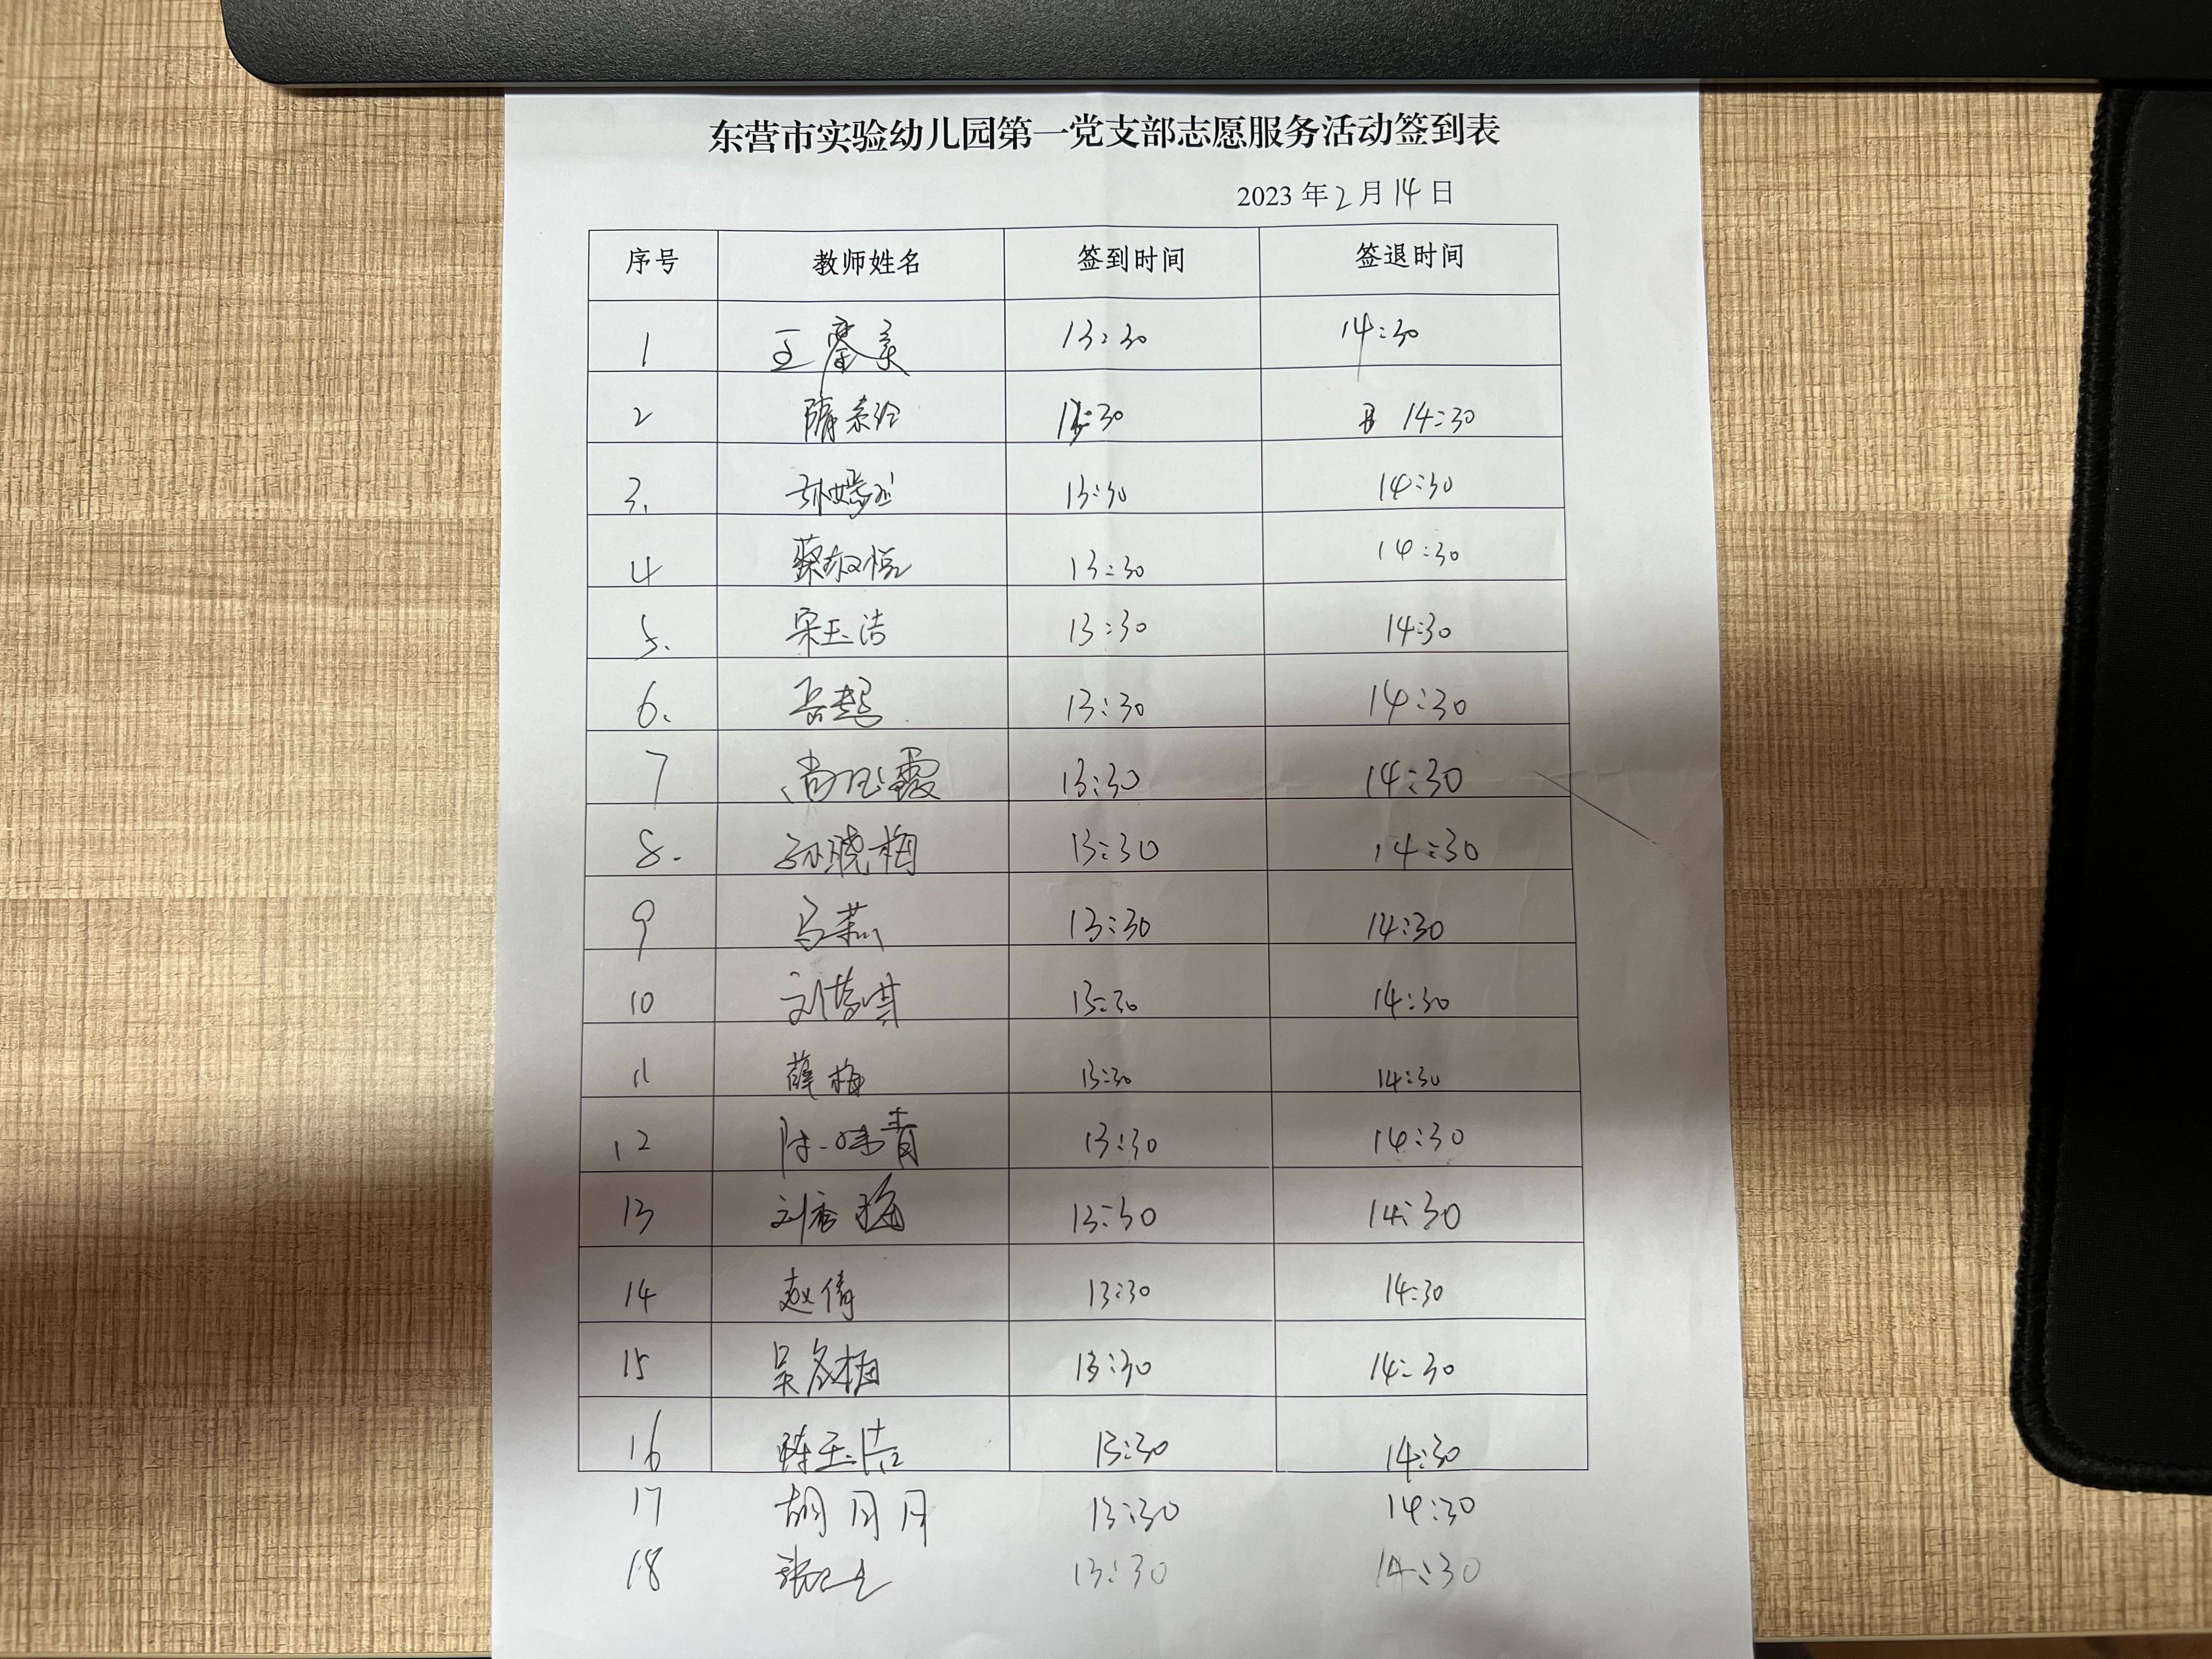 东营市实验幼儿园第一党支部志愿服务活动签到表
2023 年 2 月 14 日
序号 教师姓名 签到时间 签退时间
1 王 13:30 14:30
2 隋 13:30 14:30
3. 孙 13:30 14:30
4 蔡 13:30 14:30
5. 宋玉洁 13:30 14:30
6. 岳超 13:30 14:30
7 尚玉霞 13:30 14:30
8. 孙晓梅 13:30 14:30
9 马燕 13:30 14:30
10 刘梦琪 13:30 14:30
11 薛梅 13:30 14:30
12 陈 青 13:30 14:30
13 刘秀梅 13:30 14:30
14 赵倩 13:30 14:30
15 吴冬梅 13:30 14:30
16 陈玉洁 13:30 14:30
17 胡月月 13:30 14:30
18 张 13:30 14:30